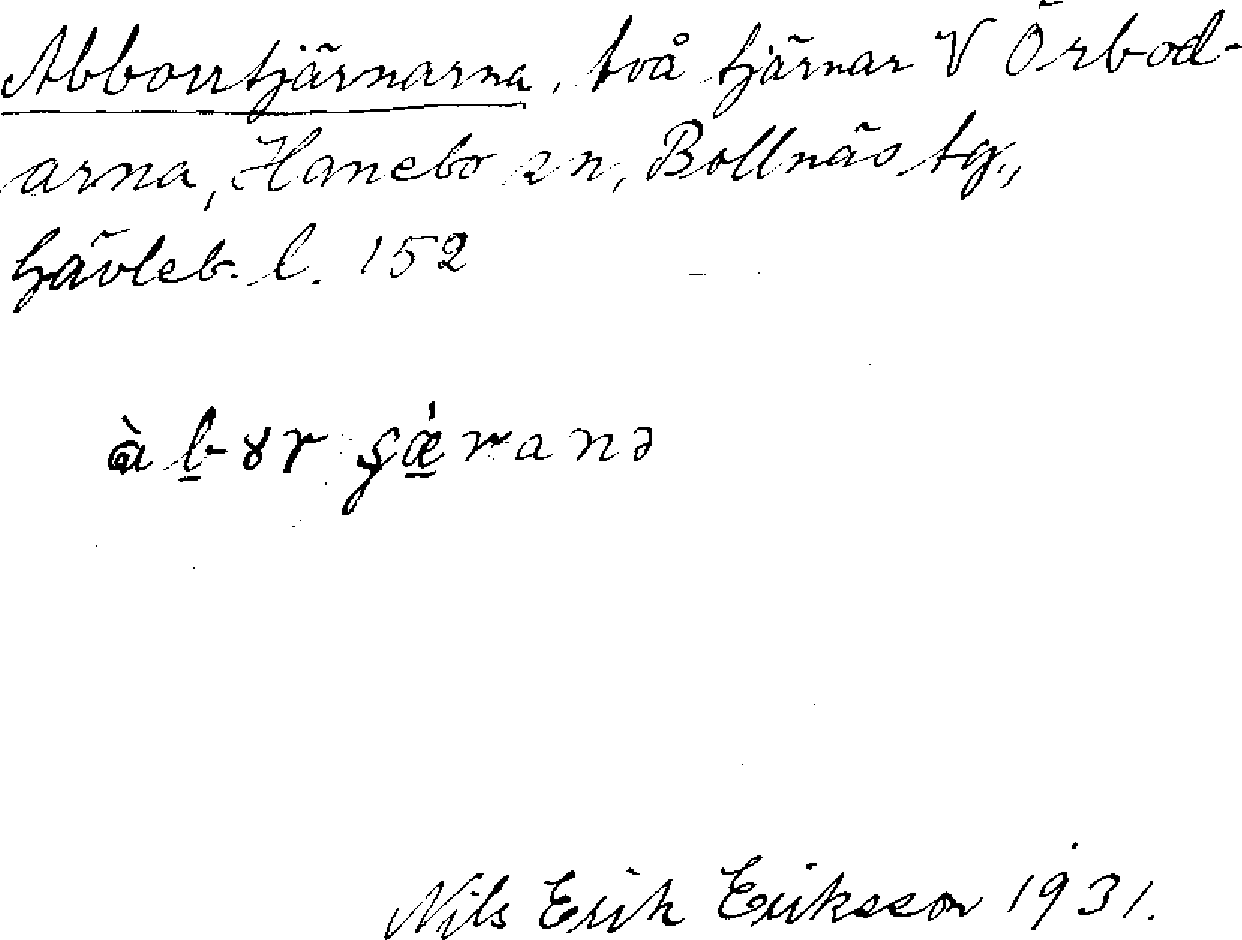 Abborrtjärnarna, två tjärnar V Örbod-
arna, Hanebo sn, Bollnäs tg.,
Gävleb. l. 152
Nils Erik Eriksson 1931.